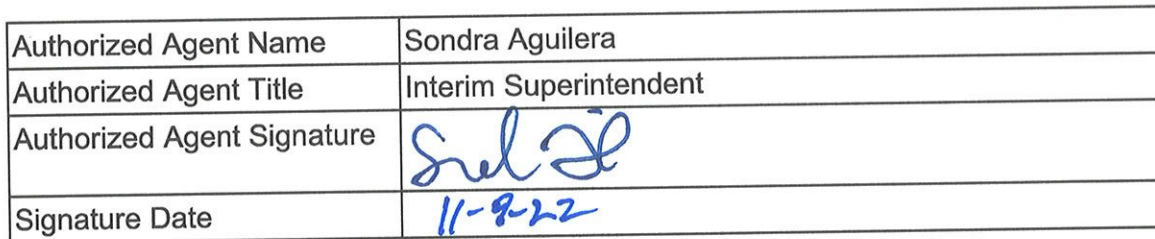 Authorized Agent Name Sondra Aguilera
Authorized Agent Title Interim Superintendent
Authorized Agent Signature
Signature Date 11-9-22